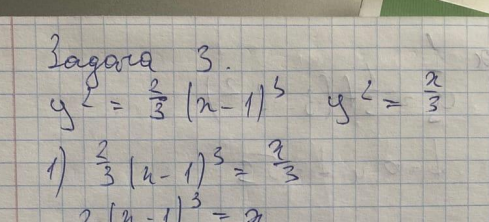 Задача 3.
y² = 2/3 (x-1)³ y² = x/3
1) 2/3 (x-1)³ = x/3
2 (x-1)³ = x